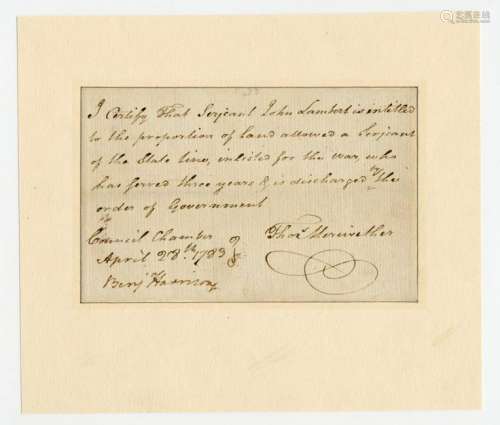 I Certify That Serjeant John Lambert is intitled
to the proportion of land allowed a Serjeant
of the State line, inlisted for the war, who
has served three years & is discharged by the
order of Government
Council Chamber
April 28th 1783
Thos. Meriwether
Benj Harrison